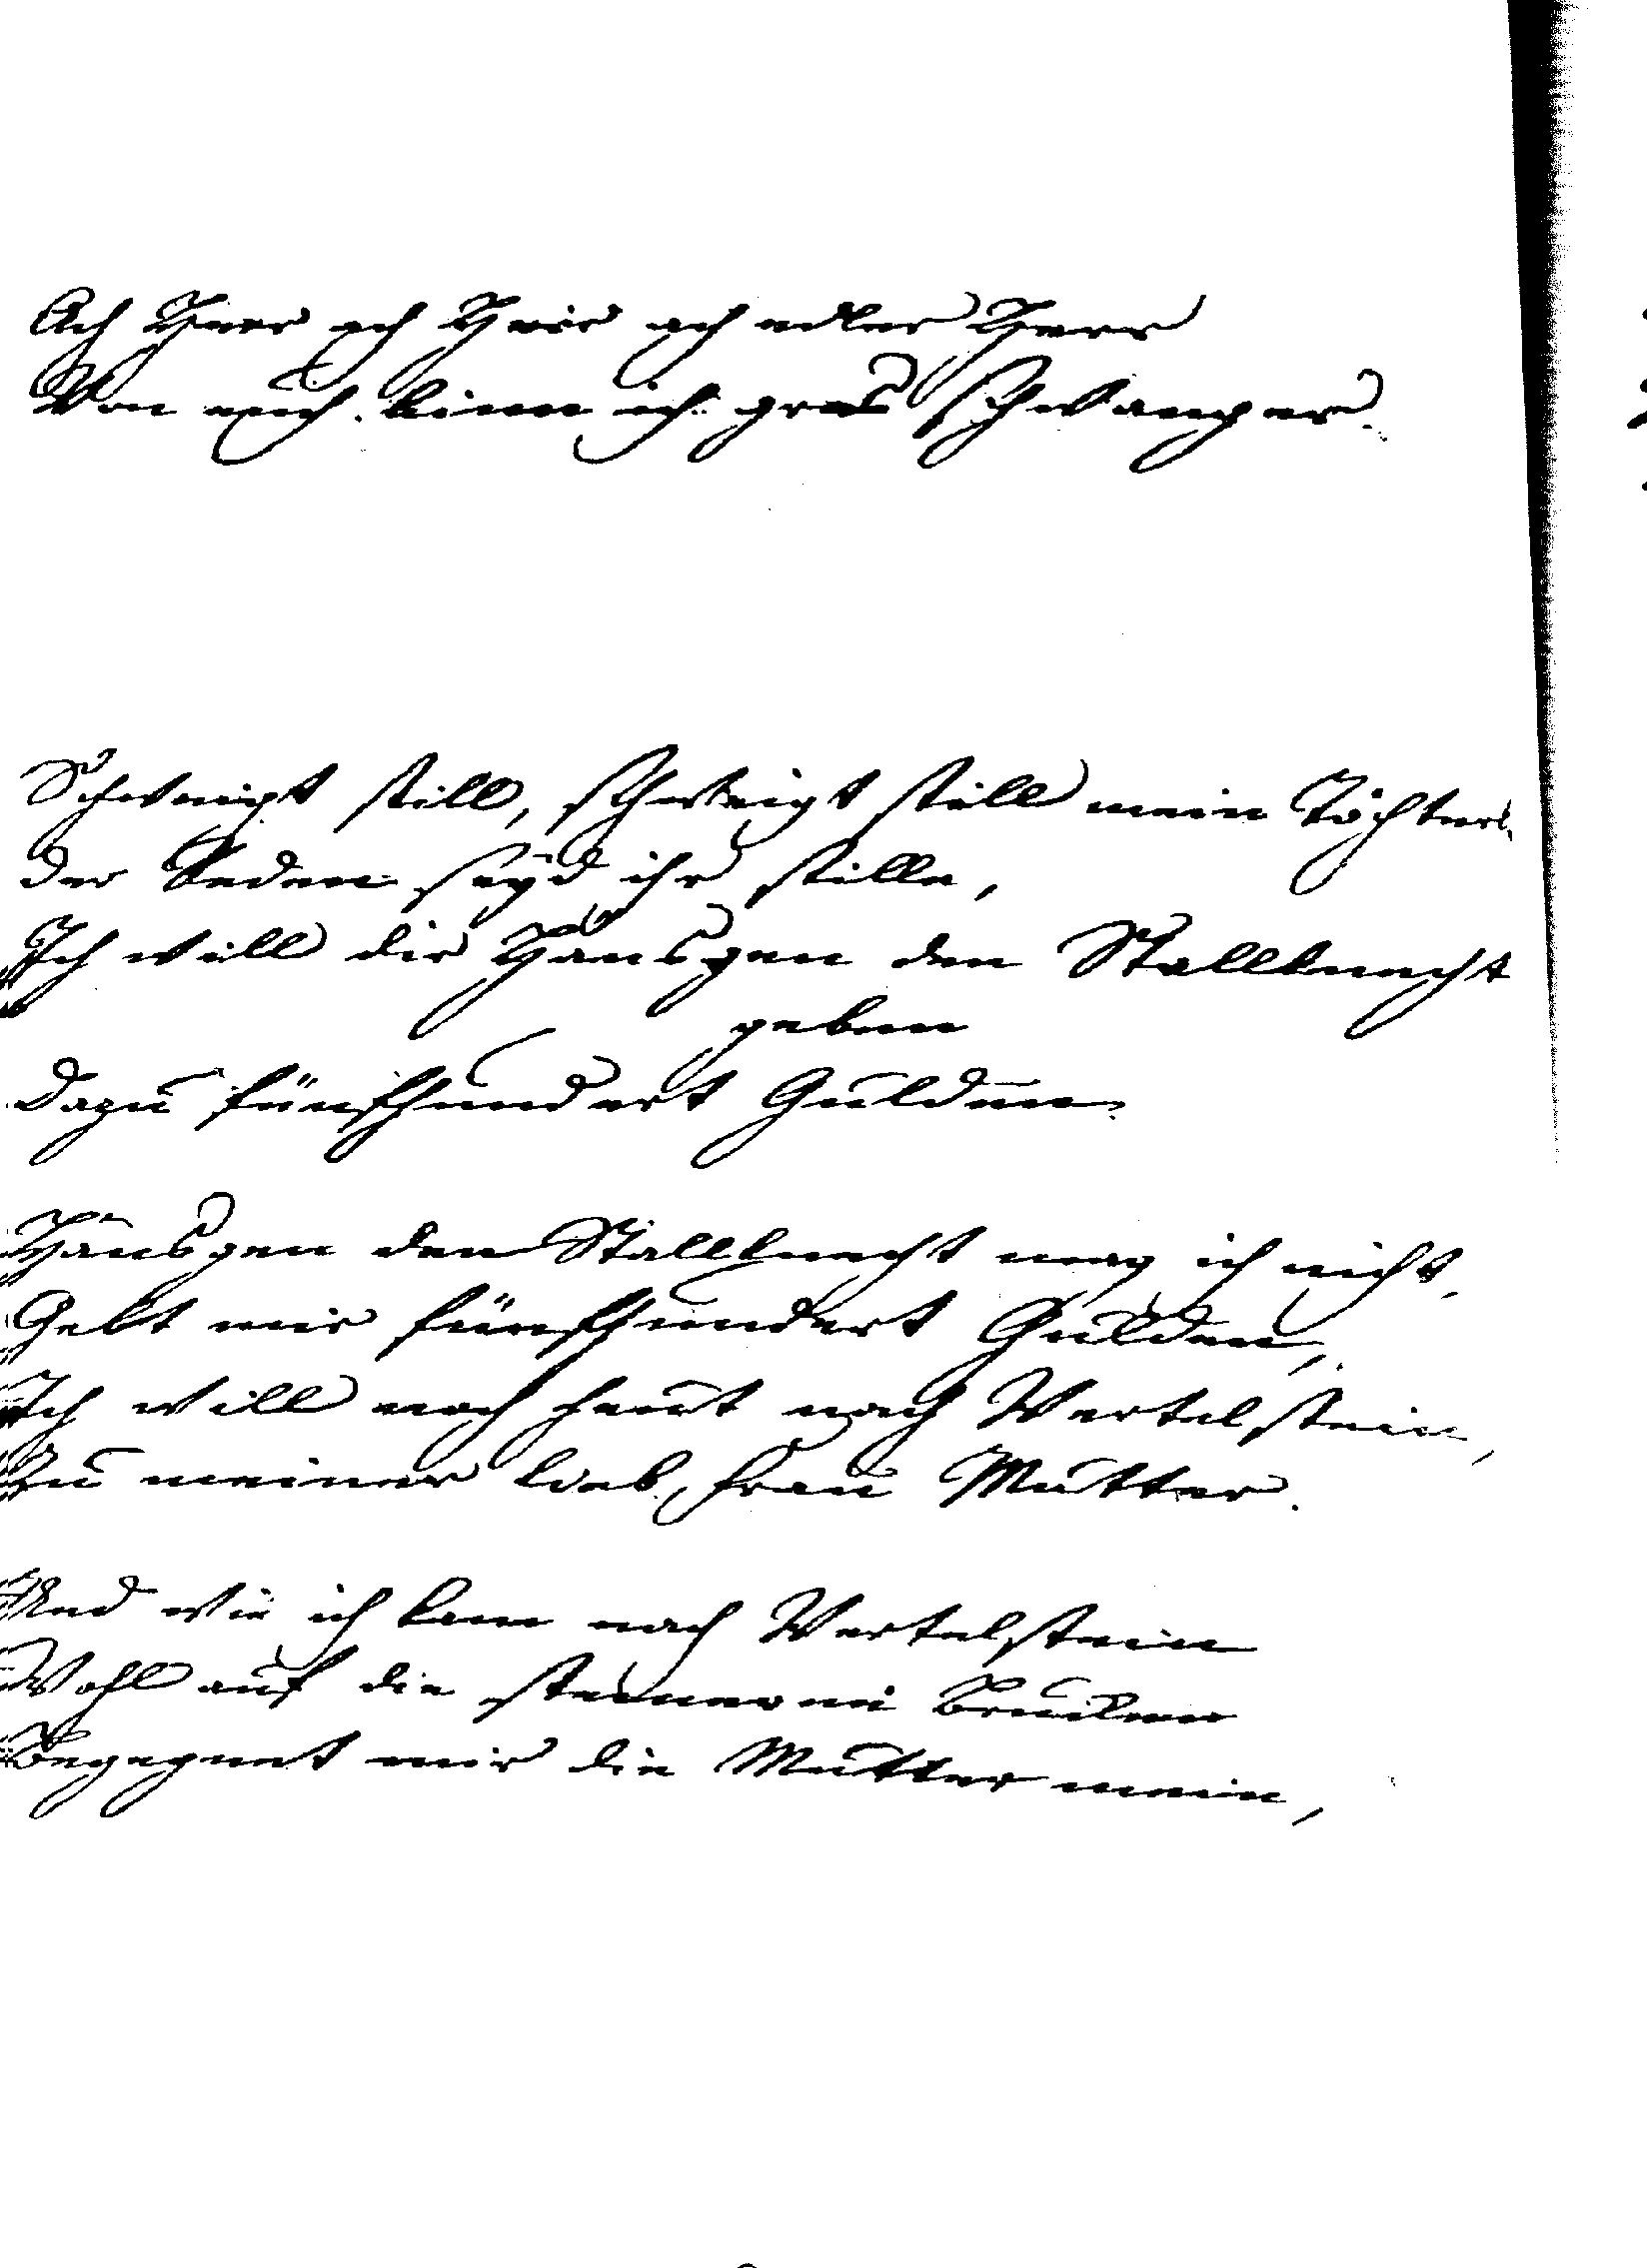 Ach Herr ach Herr ach edler Herr
Von euch binn ich gros schwanger.
Schweigt still, schweigt still mein Töchterl
der Reden seyd ihr stille,
Ich will dir Hansgen den Stallknecht
geben
dazu fünfhundert Gulden
Hansgen den Stallknecht mag ich nicht,
Gebt mir fünfhundert Gulden,
Ich will noch heut nach Wertelstein,
Zu meiner lieb, Frau Mutter.
Und wie ich kam nach Wertelstein
Wohl auf die steinerne Brucken
Begegnet mir die Mutter mein,